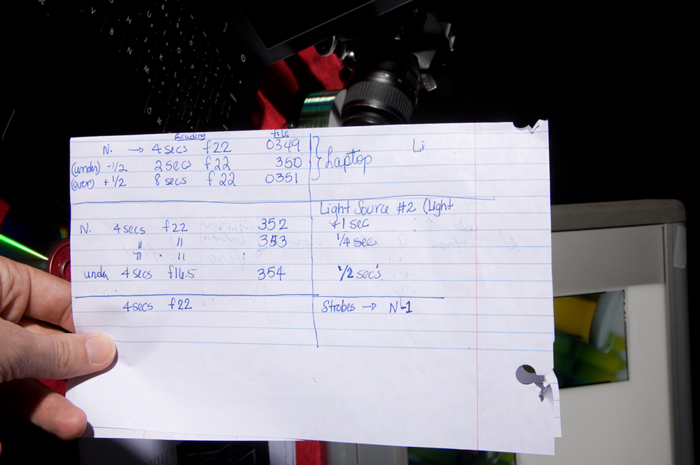 Reading file
N. → 4 secs f22 0349 Laptop Li
(under) -1/2 2 secs f22 350
(over) +1/2 8 secs f22 0351
Light Source #2 (Light
N. 4 secs f22 352 +1 sec
" " 353 1/4 sec
" "
under 4 secs f16.5 354 1/2 sec's
4 secs f22 Strobes → N-1